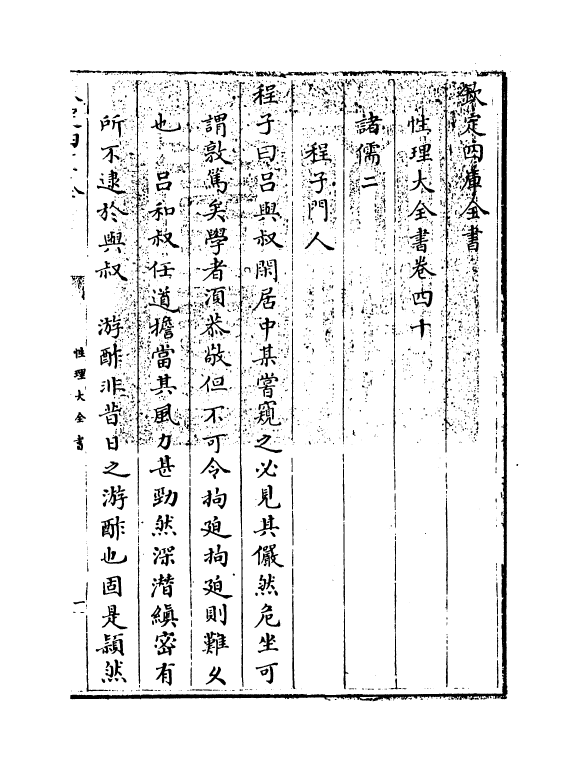 欽定四庫全書
性理大全書卷四十
諸儒二
程子門人
程子曰呂與叔閑居中某嘗窺之必見其儼然危坐可
謂敦篤矣學者須恭敬但不可令拘迫拘迫則難久
也　呂和叔任道擔當其風力甚勁然深潛縝密有
所不逮於與叔　游酢非昔日之游酢也固是頴然
性理大全書
一